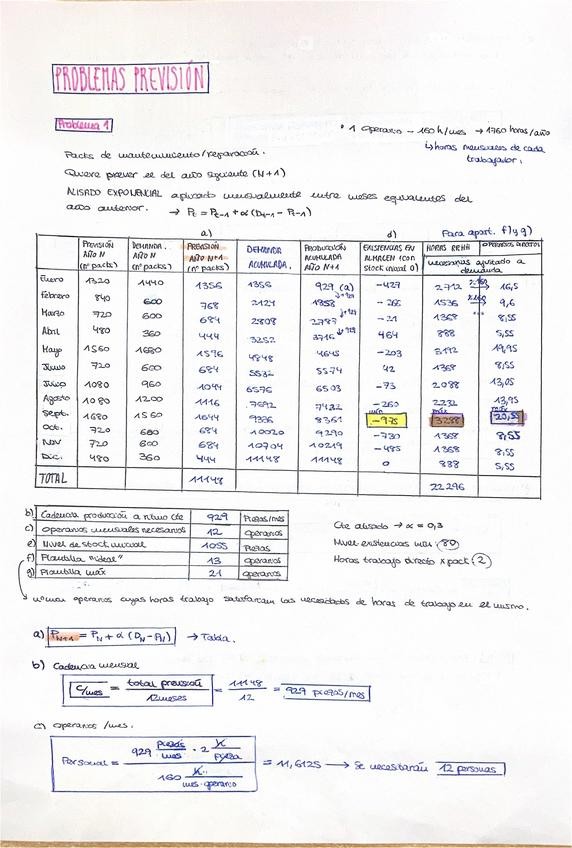 PROBLEMAS PREVISIÓN
Problema 1
* 1 operario - 160 h/mes → 1760 horas/año
↳ horas mensuales de cada trabajador.
Packs de mantenimiento/reparación.
Quiere prever el del año siguiente (N+1)
ALISADO EXPONENCIAL aplicado mensualmente entre meses equivalentes del
año anterior. → Pt = Pt-1 + α(Dt-1 - Pt-1)
a) d) Para apart. f) y g)
PREVISIÓN AÑO N (nº packs) DEMANDA AÑO N (nº packs) PREVISIÓN AÑO N+1 (nº packs) DEMANDA ACUMULADA. PRODUCCIÓN ACUMULADA AÑO N+1 EXISTENCIAS EN ALMACEN (con stock inicial 0) HORAS OPERARIOS necesarias ajustado a demanda
Enero 1320 1440 1356 1356 929 (a) -427 2712 16,5
Febrero 840 600 768 2124 1858 -266 1536 9,6
Marzo 720 600 684 2808 2787 -21 1368 8,55
Abril 480 360 444 3252 3716 464 888 5,55
Mayo 1560 1680 1596 4848 4645 -203 3192 19,95
Junio 720 600 684 5532 5574 42 1368 8,55
Julio 1080 960 1044 6576 6503 -73 2088 13,05
Agosto 1080 1200 1116 7692 7432 -260 2232 13,95
Sept. 1680 1560 1644 9336 8361 -975 3288 20,55
Oct. 720 600 684 10020 9290 -730 1368 8,55
Nov 720 600 684 10704 10219 -485 1368 8,55
Dic. 480 360 444 11148 11148 0 888 5,55
TOTAL 11148 22296
b) Cadencia producción a ritmo cte 929 Piezas/mes
c) Operarios mensuales necesarios 12 operarios
e) Nivel de stock inicial 1055 Piezas
f) Plantilla "ideal" 13 operarios
g) Plantilla máx 21 operarios
Cte alisado → α = 0,3
Nivel existencias mín: 80
Horas trabajo directo x pack 2
operarios cuyas horas trabajo satisfacían las necesidades de horas de trabajo en el mismo.
a) PN+1 = PN + α (DN - PN) → Tabla.
b) Cadencia mensual
C/mes = total previsión / 12 meses = 11148 / 12 = 929 piezas/mes
c) Operarios /mes.
Personal = 929 piezas/mes · 2 h/pieza / 160 h/mes·operario = 11,6125 → Se necesitarán 12 personas